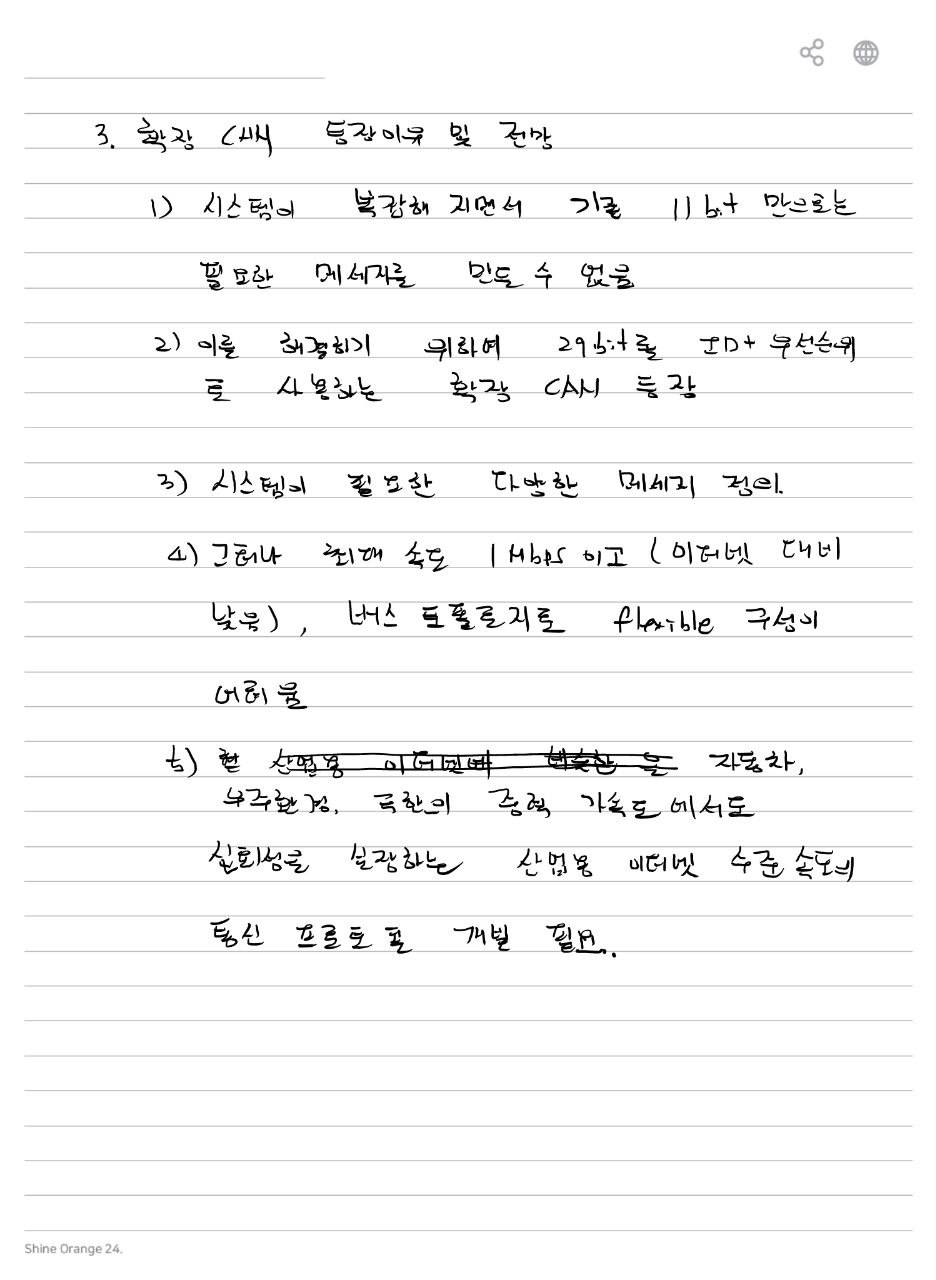 3. 확장 CAN 등장이유 및 전망
1) 시스템이 복잡해 지면서 기존 11bit 만으로는
필요한 메세지를 만들 수 없음
2) 이를 해결하기 위하여 29bit를 ID+우선순위
로 사용하는 확장 CAN 등장
3) 시스템이 필요한 다양한 메세지 정의.
4) 그러나 최대 속도 1Mbps 이고 (이더넷 대비
낮음), 버스 토폴로지로 flexible 구성이
어려움
5) 현 자동차,
우주환경, 극한의 중력 가속도에서도
신뢰성을 보장하는 산업용 이더넷 수준 속도의
통신 프로토콜 개발 필요.
Shine Orange 24.